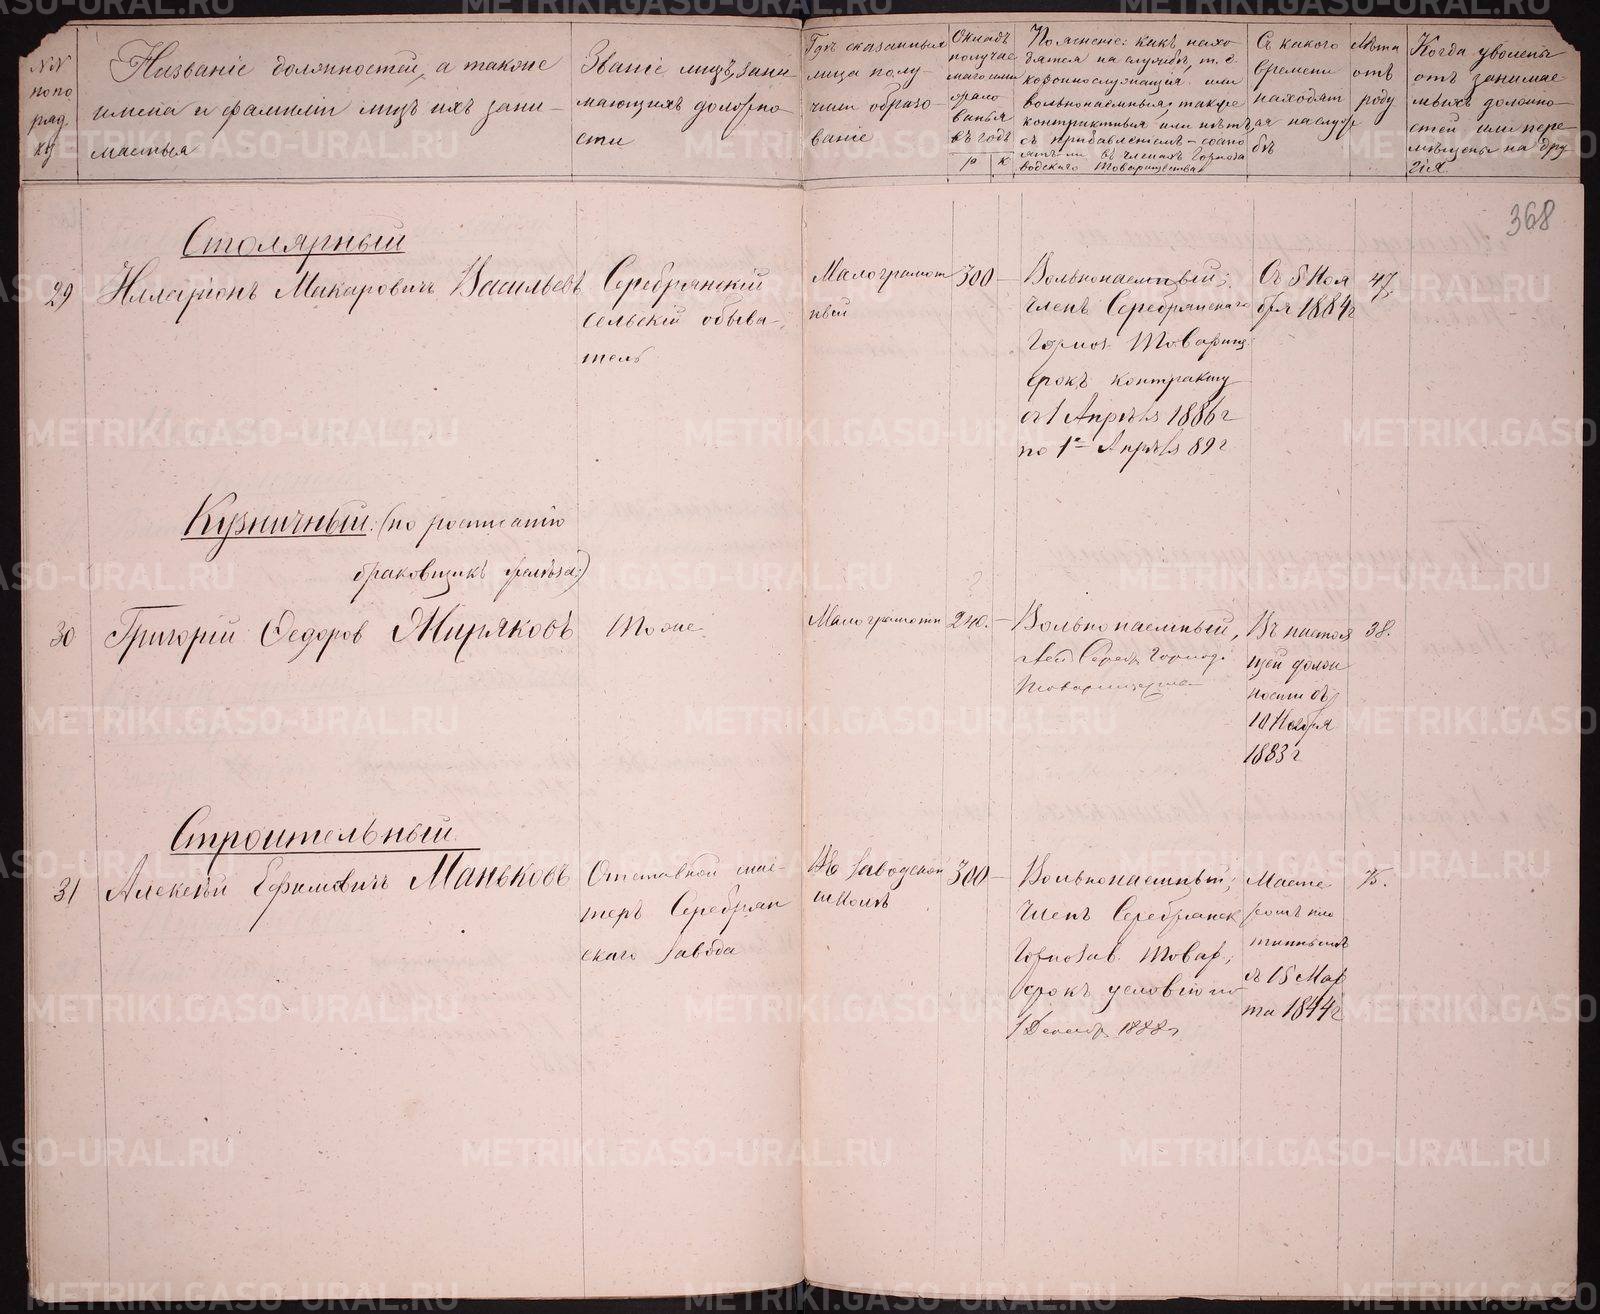 NN
по по
ряд
ку
Названіе должностей, а также
имена и фамиліи лицъ ихъ зани-
маемыя
Званіе лицъ, зани-
мающихъ должно-
сти
Гдѣ сказанныя
лица полу-
чили образо-
ваніе
Окладъ
получае
маго ими
жало
ванья
въ годъ
р к
Поясненіе: какъ нахо
дятся на службѣ, т. е.
короннослужащія или
вольнонаемныя; также
контрактныя или нѣтъ,
съ прибавленіемъ – состо
ятъ-ли въ членахъ Горноза
водскаго Товарищества
Съ какого
времени
находят
ся на служ
бѣ
Лѣта
отъ
роду
Когда уволены
отъ занимае
мыхъ должно-
стей или пере
мѣщены на дру
гія.
368
Столярный
29 Илларіонъ Макаровичъ Васильевъ
Серебрянскій
сельскій обыва-
тель
Малограмот
ный
300 –
Вольнонаемный;
членъ Серебрянскаго
Горноз. Товарищ.
срокъ контракту
съ 1 Апрѣля 1886 г
по 1е Апрѣля 89 г
Съ 8 Ноя
бря 1884 г
47.
Кузничный (по росписанію
браковщикъ желѣза)
30 Григорій Ѳедоров Жиряковъ
Тоже
Малограмотн
240. –
Вольнонаемный,
член Серебр. Горнозав.
Товарищества
Въ настоя
щей долж
ности съ
10 Ноября
1883 г
38.
Строительный
31 Алексѣй Ефимовичъ Маньковъ
Отставной мас-
теръ Серебрян
скаго завода
Въ заводской
школѣ
300 –
Вольнонаемный;
Членъ Серебрянск
Горнозав. Товар.;
срокъ условію по
1 Декабр. 1888 г
Масте
ромъ пло
тиннымъ
съ 15 Мар
та 1844 г
75.
METRIKI.GASO-URAL.RU